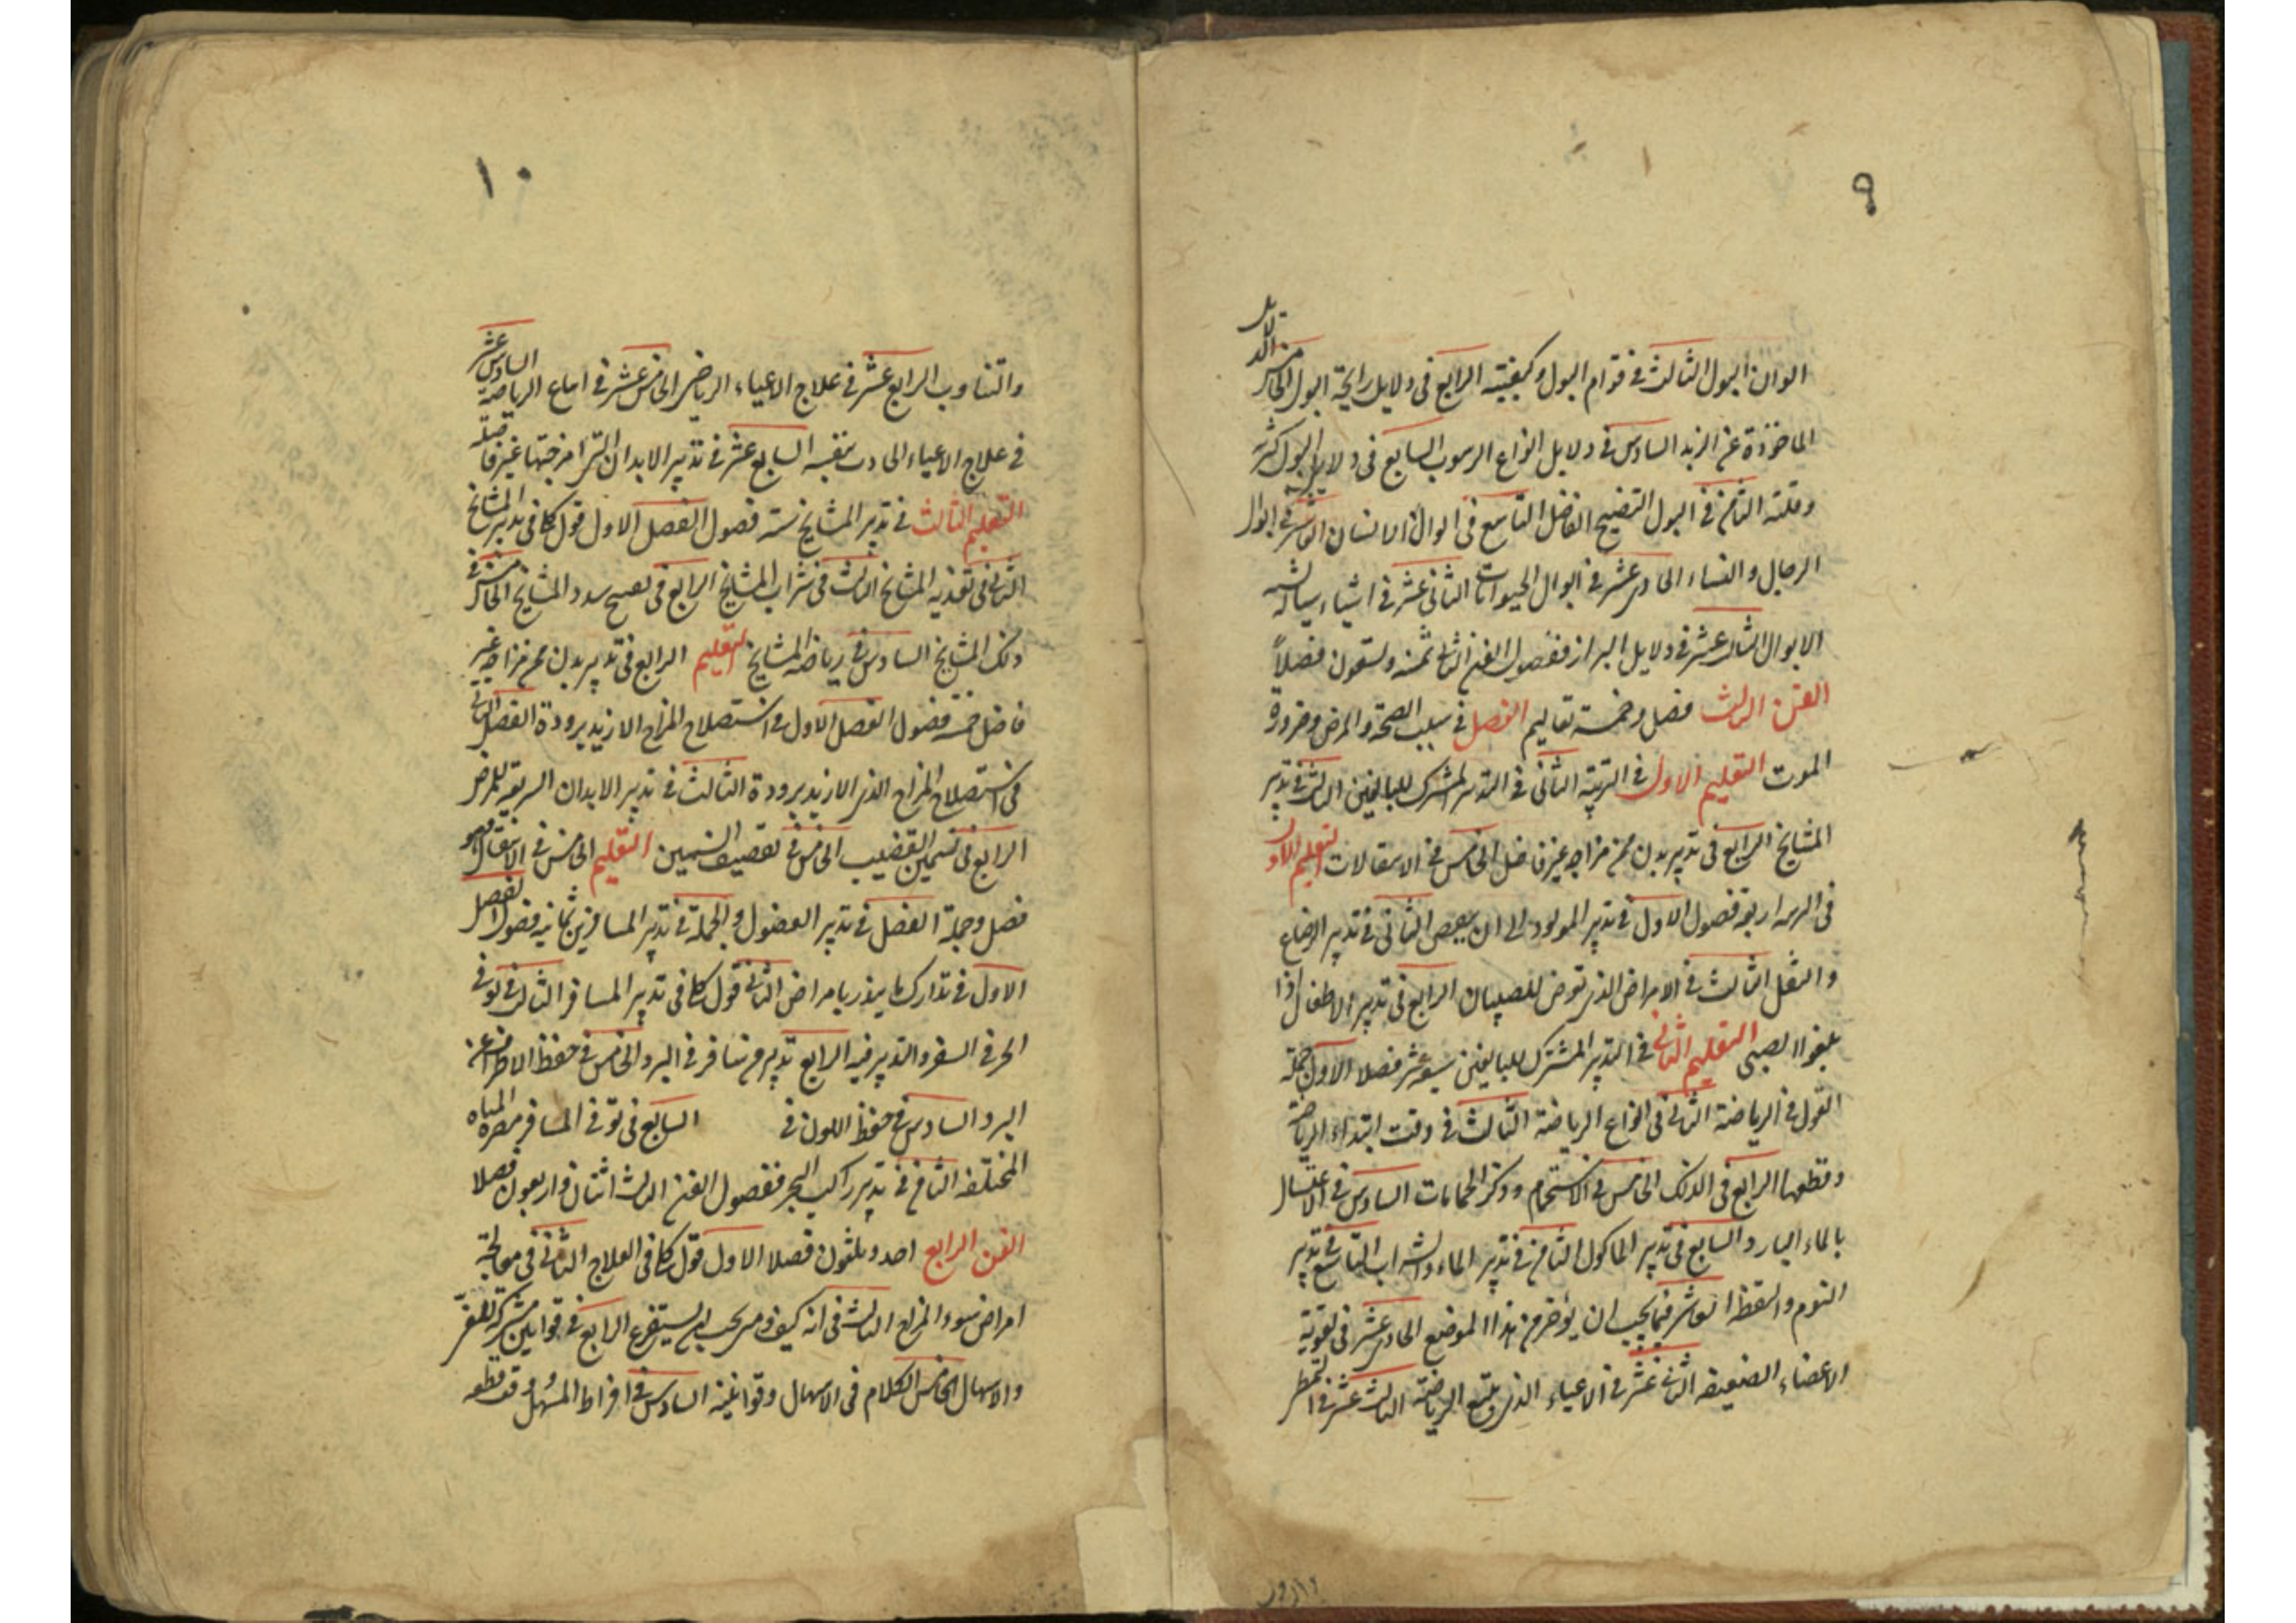 ٩
الوان البول الثالث فى قوام البول وكيفيته الرابع فى دلايل رايحة البول الخامس الدلايل
الماخوذة عن الزبد السادس فى دلايل انواع الرسوب السابع فى دلايل البول كثرته
وقلته الثامن فى البول النضيج الفاضل التاسع فى ابوال الانسان العاشر فى ابوال
الرجال والنساء الحادى عشر فى ابوال الحيوانات الثانى عشر فى اشياء سيالة
الابوال الثالث عشر فى دلايل البراز ففصول الفن الثانى ثمنه وتسعون فصلاً
الفن الثالث فصل وخمسة تعاليم الفصل فى سبب الصحة والمرض وضرورة
الموت التعليم الاول فى التربية الثانى فى التدبير المشترك للبالغين الثالث فى تدبير
المشايخ الرابع فى تدبير بدن من مزاجه غير فاضل الخامس فى الانتقالات التعليم الاول
فى اربعة فصول الاول فى تدبير المولود الى ان الثانى فى تدبير الارضاع
والنقل الثالث فى الامراض الذى تعرض للصبيان الرابع فى تدبير الاطفال اذا
بلغوا الصبى التعليم الثانى فى التدبير المشترك للبالغين سبعة عشر فصلا الاول جملة
القول فى الرياضة الثانى فى انواع الرياضة الثالث فى وقت ابتداء الرياضة
وقطعها الرابع فى الدلك الخامس فى الاستحمام وذكر الحمامات السادس فى الاغتسال
بالماء البارد السابع فى تدبير الماكول الثامن فى تدبير الماء والشراب التاسع فى تدبير
النوم واليقظة العاشر فيما يجب ان يؤخر من هذا الموضع الحادى عشر فى تقوية
الاعضاء الضعيفة الثانى عشر فى الاعياء الذى يتبع الرياضة الثالث عشر فى التمطى
١٠
والتثاوب الرابع عشر فى علاج الاعياء الرياضى الخامس عشر فى الرياضة السادس عشر
فى علاج الاعياء الحادث بنفسه السابع عشر فى تدبير الابدان التى امزجتها غير فاضلة
التعليم الثالث فى تدبير المشايخ ستة فصول الفصل الاول قول كلى فى تدبير المشايخ
الثانى فى تغذية المشايخ الثالث فى شراب المشايخ الرابع فى سدد المشايخ الخامس فى
دلك المشايخ السادس فى رياضة المشايخ التعليم الرابع فى تدبير بدن من مزاجه غير
فاضل خمسة فصول الفصل الاول فى استصلاح المزاج الازيد برودة الفصل الثانى
فى استصلاح المزاج الذى الازيد برودة الثالث فى تدبير الابدان السريعة للمرض
الرابع فى تسمين القضيف الخامس فى تقصيف السمين التعليم الخامس فى الانتقال وهو
فصل وجملة الفصل فى تدبير الفصول والجملة فى تدبير المسافرين ثمانية فصول الفصل
الاول فى تدارك ما ينذر بامراض الثانى قول كلى فى تدبير المسافر الثالث فى توقى
الحر فى السفر والتدبير فيه الرابع تدبير من سافر فى البرد الخامس فى حفظ الاطراف عن
البرد السادس فى حفظ اللون فى السابع فى توقى المسافر مضرة المياه
المختلفة الثامن فى تدبير راكب البحر ففصول الفن الثالث اثنان واربعون فصلا
الفن الرابع احد وثلثون فصلا الاول قول كلى فى العلاج الثانى فى معالجة
امراض سوء المزاج الثالث فى انه كيف ومتى يجب ان يستفرغ الرابع فى قوانين مشتركة للقئ
والاسهال الخامس الكلام فى الاسهال وقوانينه السادس فى افراط المسهل ووقت قطعه